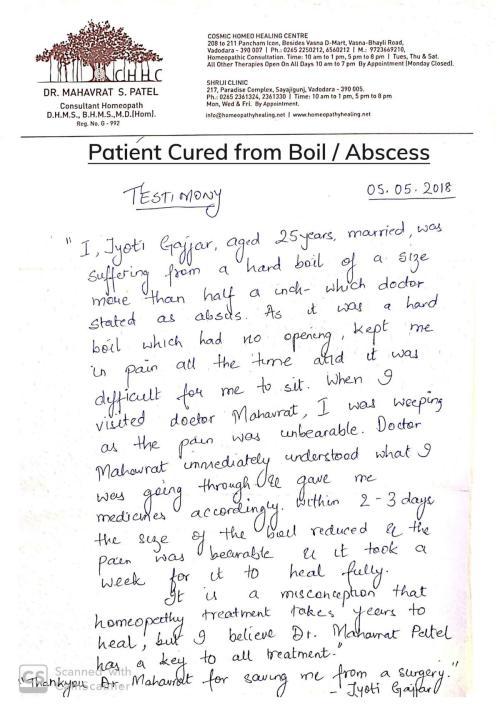 CHHC
DR. MAHAVRAT S. PATEL
Consultant Homeopath
D.H.M.S., B.H.M.S.,M.D.(Hom).
Reg. No. G - 992
COSMIC HOMEO HEALING CENTRE
208 to 211 Pancham Icon, Besides Vasna D-Mart, Vasna-Bhayli Road,
Vadodara - 390 007 | Ph.: 0265 2250212, 6560212 | M.: 9723669210,
Homeopathic Consultation. Time: 10 am to 1 pm, 5 pm to 8 pm | Tues, Thu & Sat.
All Other Therapies Open On All Days 10 am to 7 pm By Appointment (Monday Closed).
SHRIJI CLINIC
217, Paradise Complex, Sayajigunj, Vadodara - 390 005.
Ph.: 0265 2361324, 2361330 | Time: 10 am to 1 pm, 5 pm to 8 pm
Mon, Wed & Fri. By Appointment.
info@homeopathyhealing.net | www.homeopathyhealing.net
Patient Cured from Boil / Abscess
TESTIMONY
05.05.2018
"I, Jyoti Gajjar, aged 25years, married, was
suffering from a hard boil of a size
more than half a inch- which doctor
stated as absis. As it was a hard
boil which had no opening, kept me
in pain all the time and it was
difficult for me to sit. When I
visited doctor Mahavrat, I was weeping
as the pain was unbearable. Doctor
Mahavrat immediately understood what I
was going through & gave me
medicines accordingly. Within 2-3 days
the size of the boil reduced & the
pain was bearable & it took a
week for it to heal fully.
It is a misconception that
homeopathy treatment takes years to
heal, but I believe Dr. Mahavrat Patel
has a key to all treatment."
"Thankyou Dr. Mahavrat for saving me from a surgery."
- Jyoti Gajjar
CS Scanned with
CamScanner